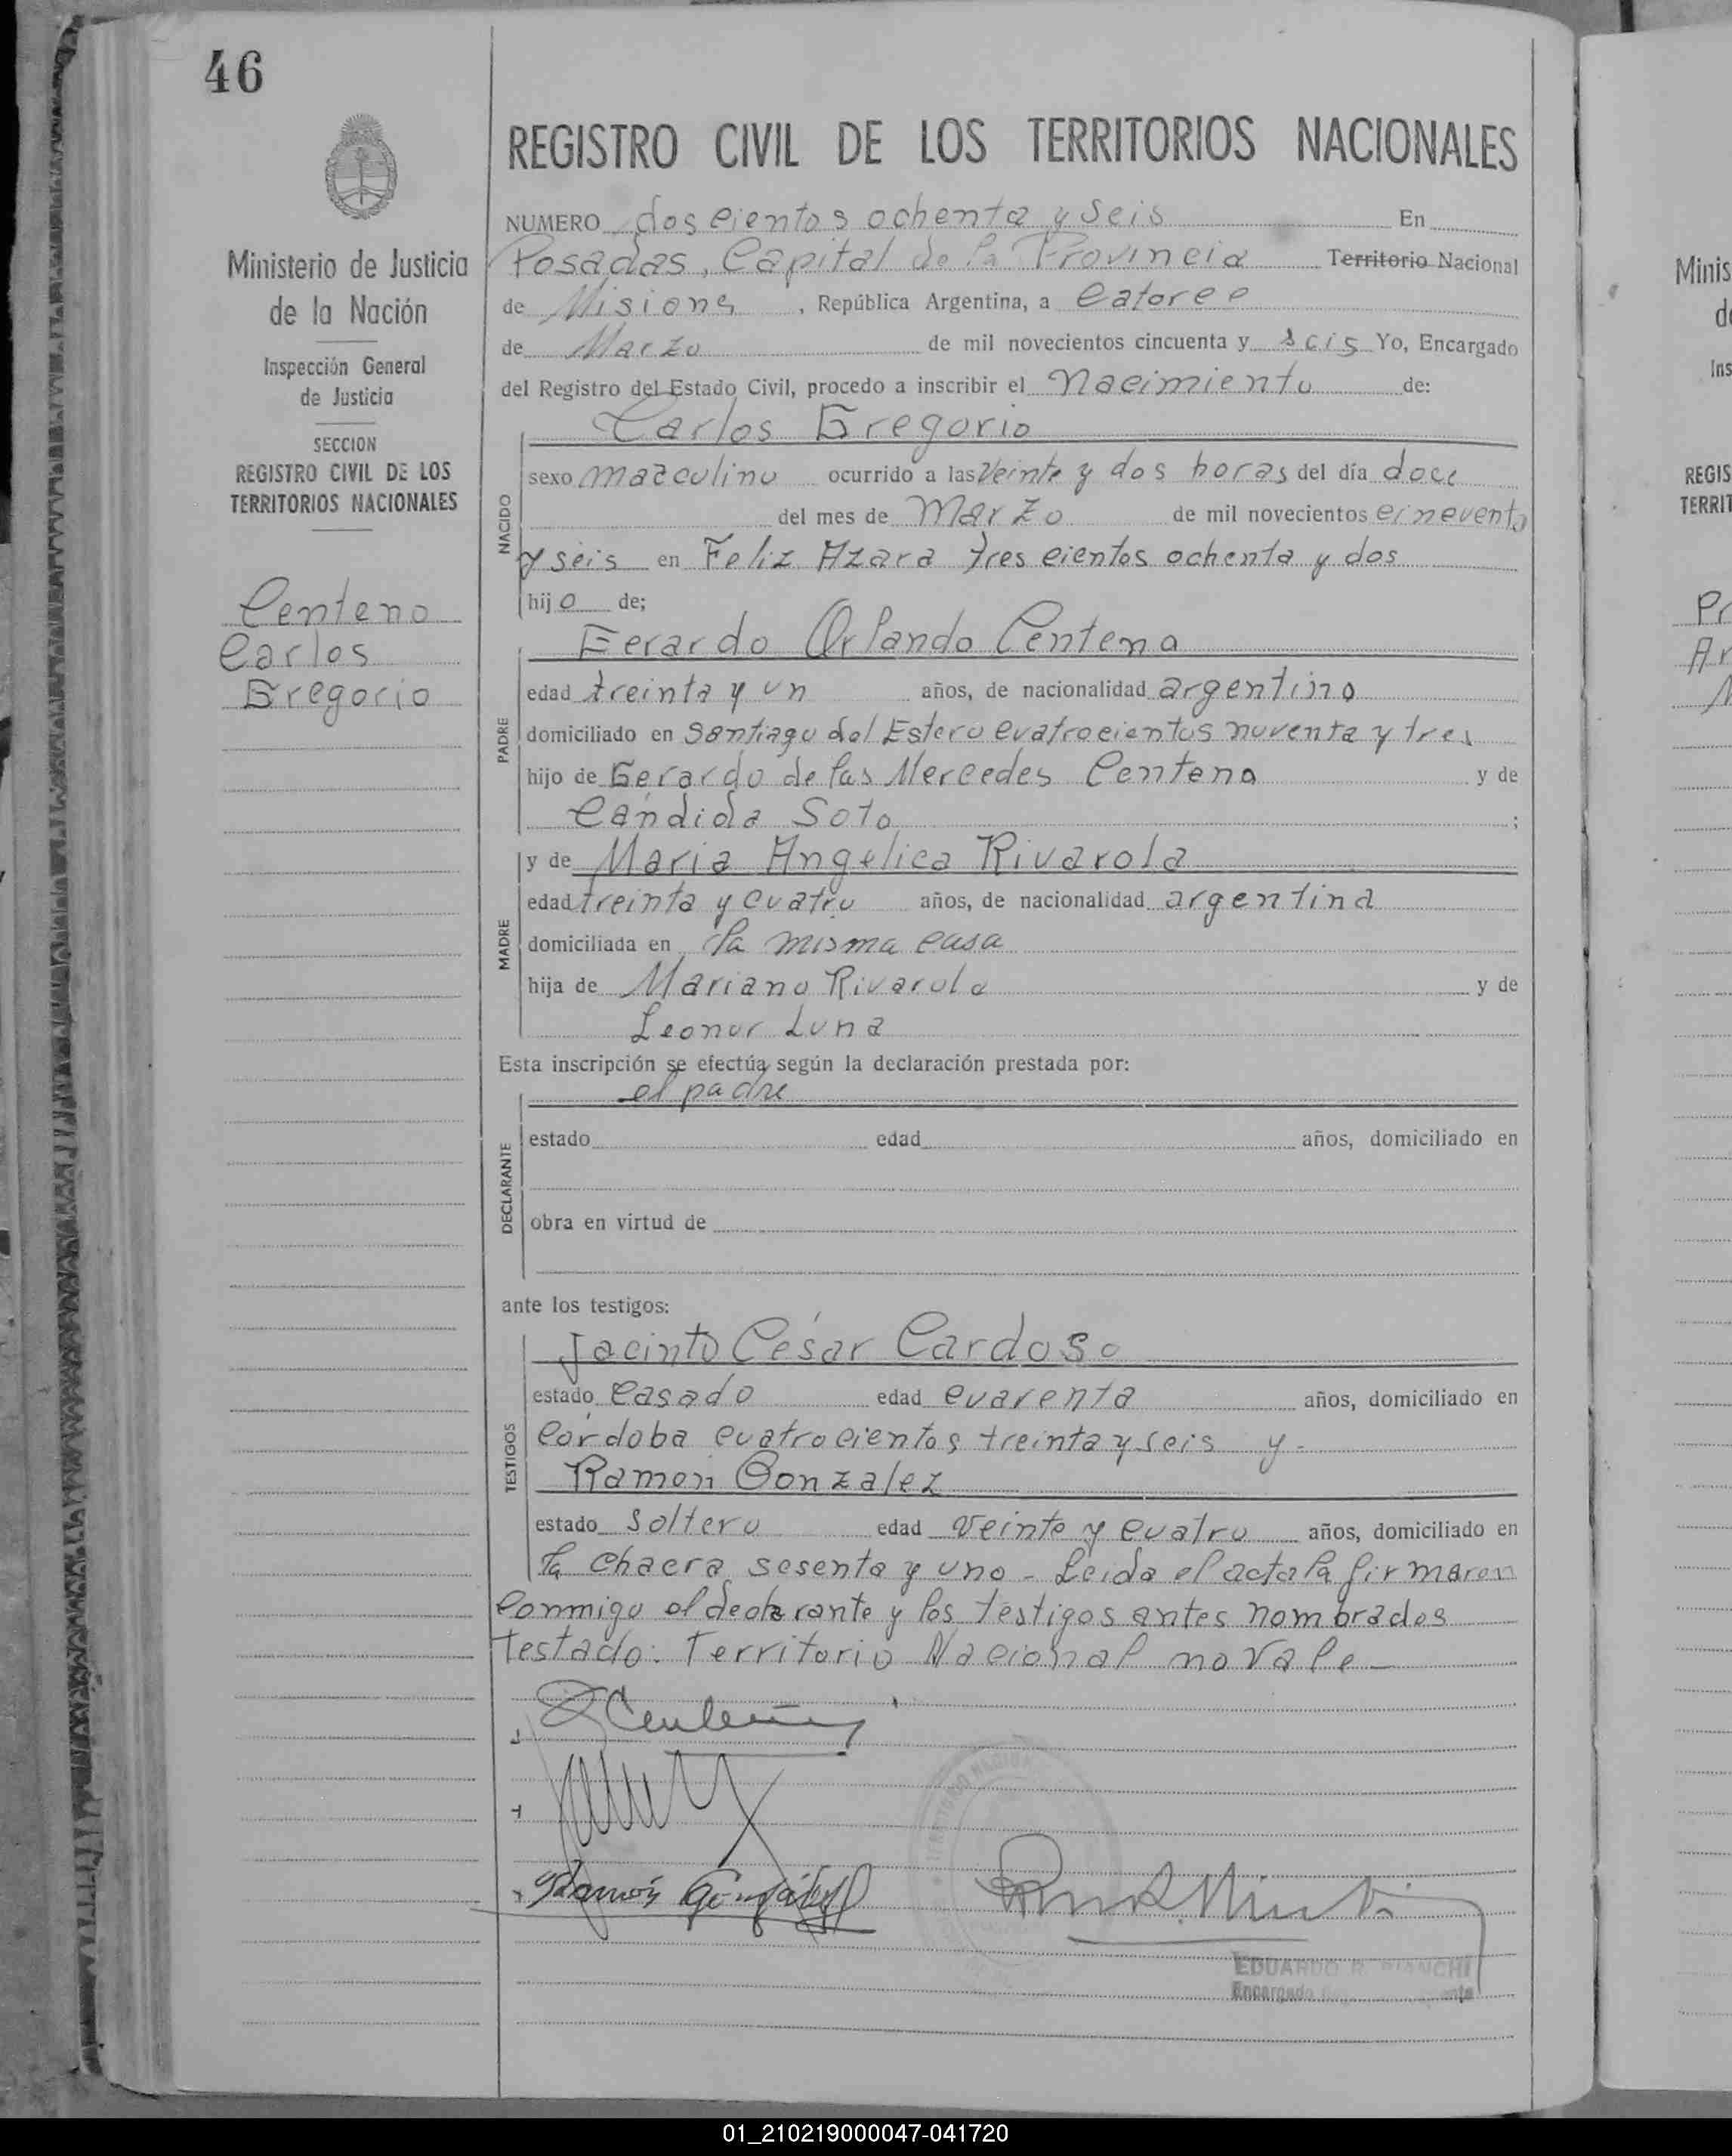 46
REGISTRO CIVIL DE LOS TERRITORIOS NACIONALES
Ministerio de Justicia
de la Nación
Inspección General
de Justicia
SECCION
REGISTRO CIVIL DE LOS
TERRITORIOS NACIONALES
Centeno
Carlos
Gregorio
NUMERO doscientos ochenta y seis En
Posadas, Capital de la Provincia Territorio Nacional
de Misiones, República Argentina, a catorce
de Marzo de mil novecientos cincuenta y seis Yo, Encargado
del Registro del Estado Civil, procedo a inscribir el Nacimiento de:
NACIDO
Carlos Gregorio
sexo masculino ocurrido a las veinte y dos horas del día doce
del mes de Marzo de mil novecientos cincuenta
y seis en Feliz Azara tres cientos ochenta y dos
hijo de;
PADRE
Gerardo Orlando Centeno
edad treinta y un años, de nacionalidad argentino
domiciliado en Santiago del Estero cuatrocientos noventa y tres
hijo de Gerardo de las Mercedes Centeno y de
Cándida Soto ;
MADRE
y de Maria Angelica Rivarola
edad treinta y cuatro años, de nacionalidad argentina
domiciliada en la misma casa
hija de Mariano Rivarola y de
Leonor Luna
Esta inscripción se efectúa según la declaración prestada por:
DECLARANTE
el padre
estado edad años, domiciliado en
obra en virtud de
ante los testigos:
TESTIGOS
Jacinto César Cardoso
estado casado edad cuarenta años, domiciliado en
Córdoba cuatrocientos treinta y seis y-
Ramon Gonzalez
estado soltero edad veinte y cuatro años, domiciliado en
la chacra sesenta y uno - Leida el acta la firmaron
conmigo el declarante y los testigos antes nombrados
Testado: Territorio Nacional no vale-
Centeno
Ramón González
EDUARDO R. BIANCHI
Encargado
Minis
Ins
REGIS
TERRIT
01_210219000047-041720